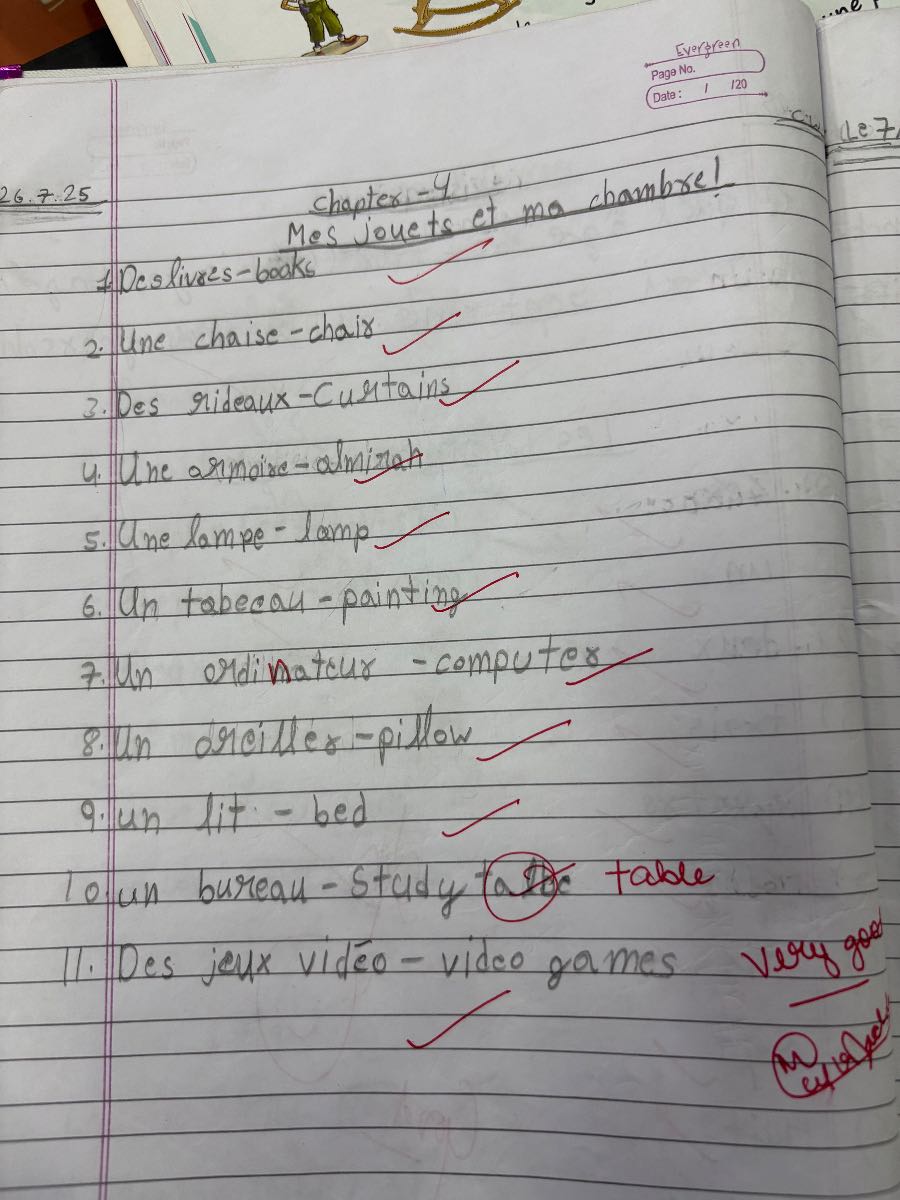 Evergreen
Page No.
Date : / /20
CW
(Le 7
26.7.25
Chapter - 4
Mes jouets et ma chambre!
1. Des livres - books
2. Une chaise - chair
3. Des rideaux - Curtains
4. Une armoire - almirah
5. Une lampe - lamp
6. Un tabeeau - painting
7. Un ordinateur - computer
8. Un oreiller - pillow
9. un lit - bed
10. un bureau - Study table
11. Des jeux vidéo - video games
very good